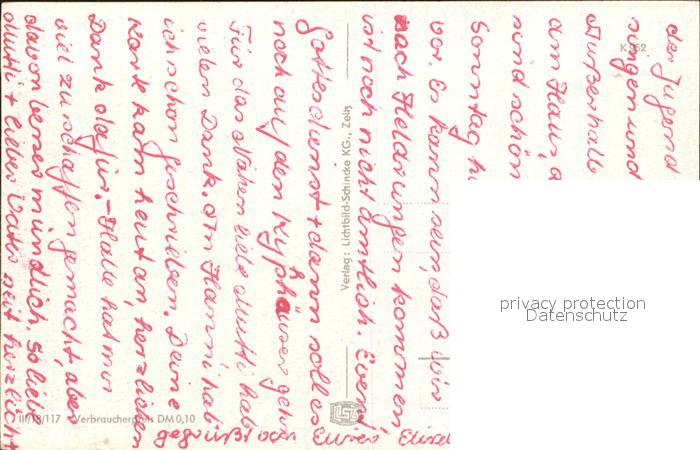 der Jugend
singen und
Außerhalb
am Haus,
sind schön
Sonntag
vor. Es kann sein, daß wir
nach Heldrungen kommen
ist noch nicht amtlich. Event
Gottesdienst + dann soll es
noch auf den Kyffhäuser gehn
Für das Nähen liebe Mutti hab
vielen Dank. An Hanni hab
ich schon geschrieben. Deine
Karte kam heut an, herzlichen
Dank dafür. – Halle hat mir
viel zu schaffen gemacht, aber
davon besser mündlich. So liebe
Mutti + lieber Vater seit herzlichst
gegrüßt von Eurer
K 352
Verlag: Lichtbild-Schincke KG., Zeitz
III/18/117 Verbraucherpreis DM 0,10
privacy protection
Datenschutz